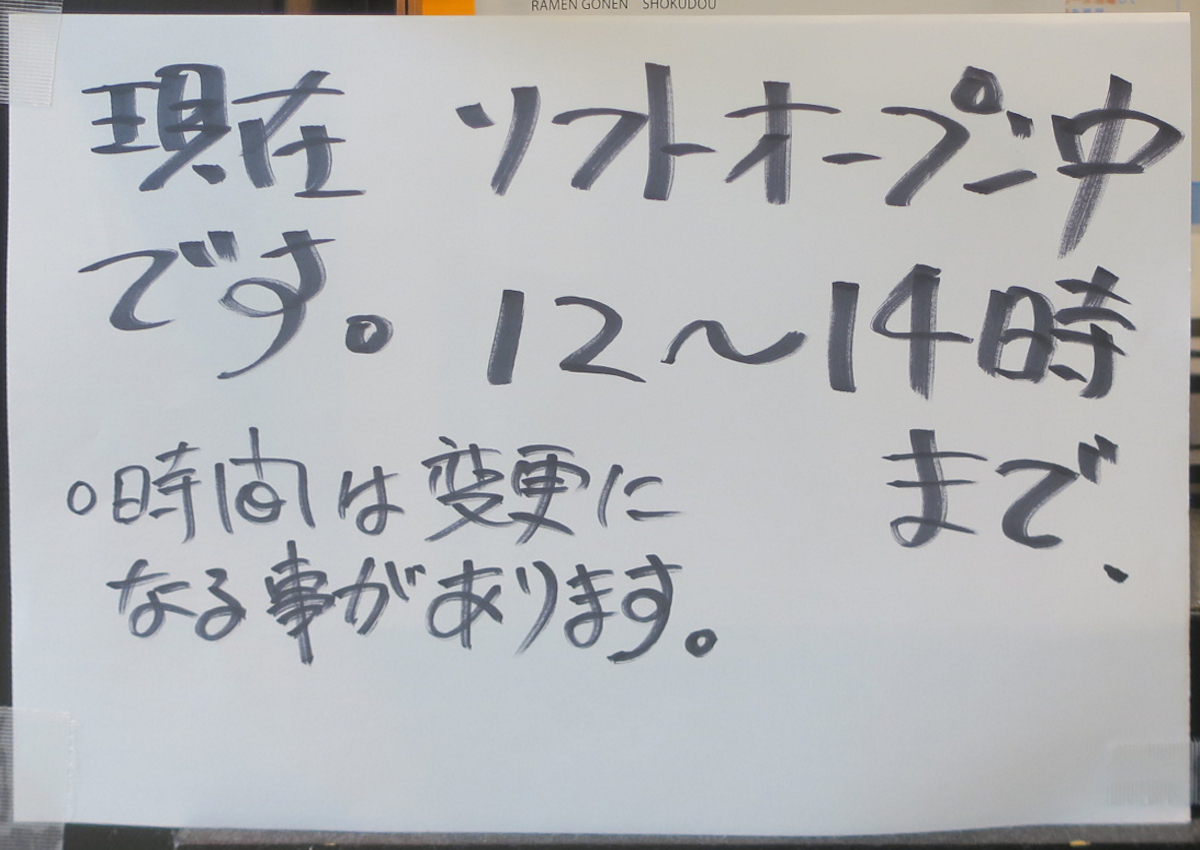 RAMEN GONEN SHOKUDOU
現在 ソフトオープン中
です。 12〜14時
まで、
○時間は変更に
なる事があります。